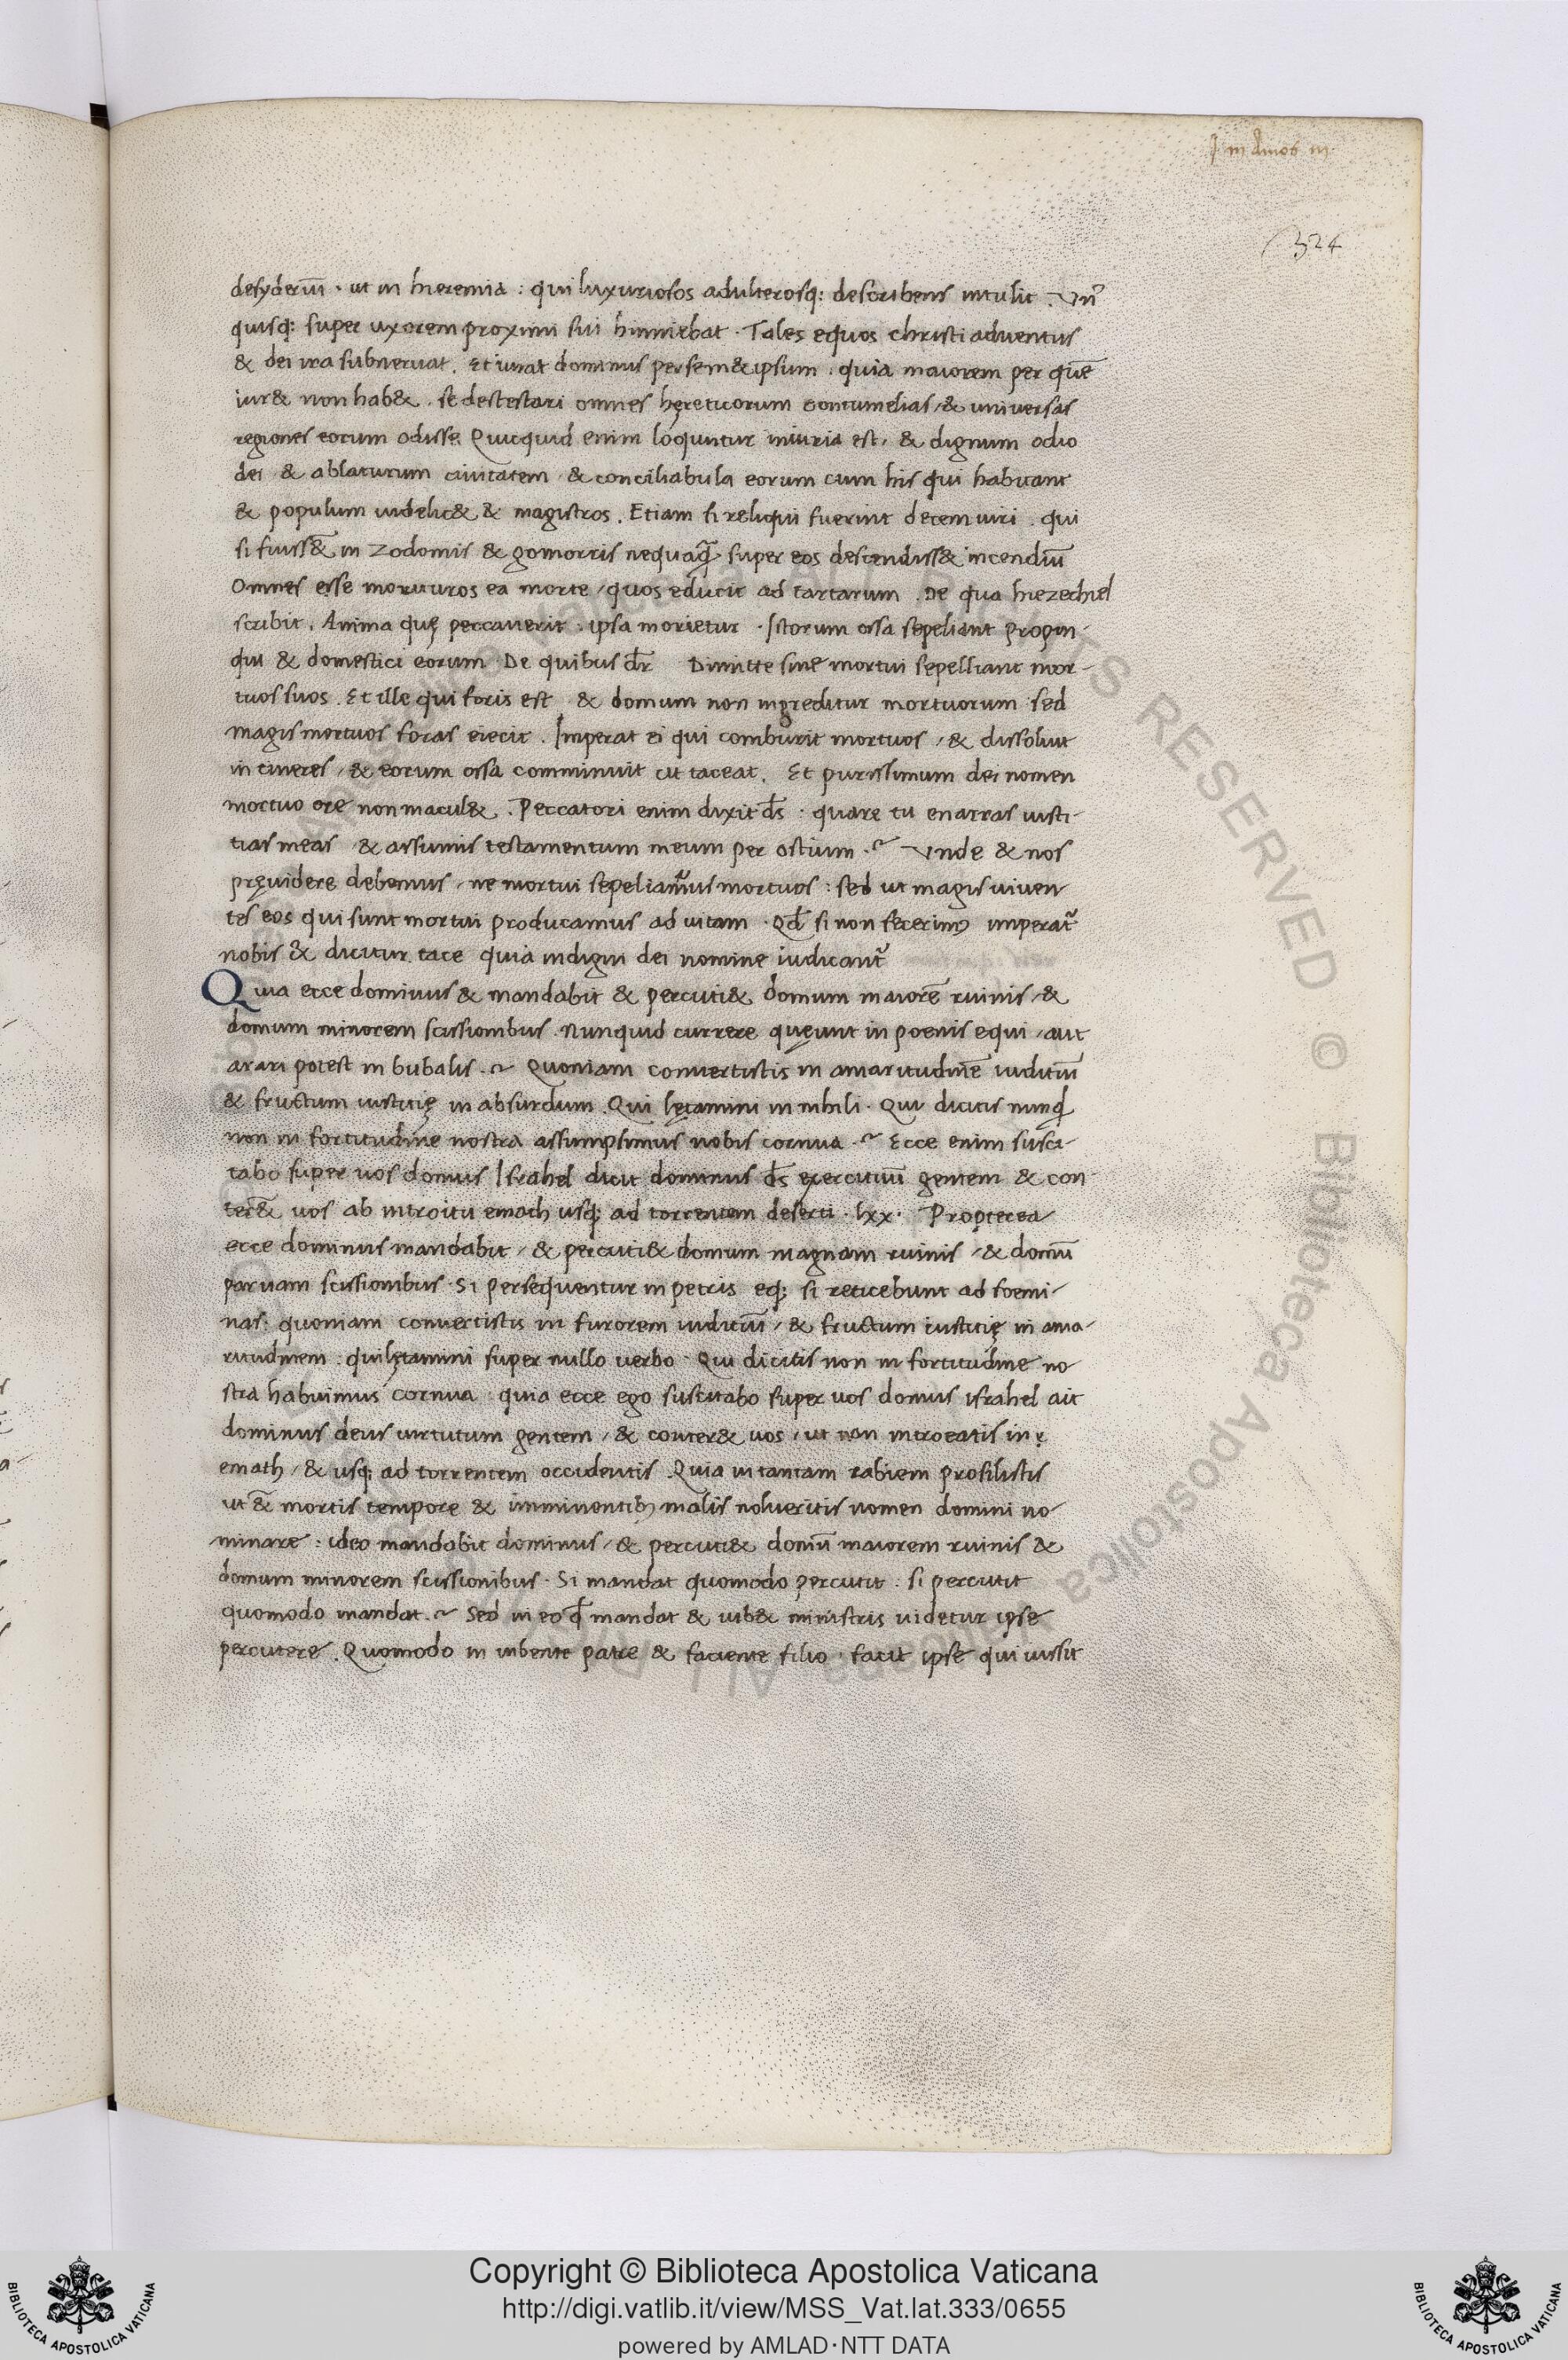 In Amos III
324
desyderiũ · ut in hieremia : qui luxuriosos adulterosq; describens intulit . Vn⁹
quisq; super uxorem proximi sui hinniebat · Tales equos christi aduentus
& dei ira subneruat . Et iurat dominus per sem&ipsum : quia maiorem per quẽ
iur& non hab& . se destestari omnes hęreticorum contumelias / & universas
regiones eorum odisse Quicquid enim loquntur iniuria est , & dignum odio
dei & ablaturum ciuitatem / & conciliabula eorum cum his qui habitant
& populum uidelic& & magistros . Etiam si reliqui fuerint decem uiri . qui
si fuiss&̃ in Zodomis & gomorris nequaq̃ super eos descendiss& incendiũ
Omnes esse morituros ea morte / quos educit ad tartarum . De qua hiezechiel
scribit . Anima quę peccauerit : ipsa morietur · Istorum ossa sepeliant propin-
qui & domestici eorum · De quibus dr̃ Dimitte sine mortui sepelliant mor-
tuos suos . Et ille qui foris est & domum non ingreditur mortuorum sed
magis mortuos foras eiecit . Imperat ei qui comburit mortuos / & dissoluit
in cineres / & eorum ossa comminuit ut taceat . Et purissimum dei nomen
mortuo ore non macul& . Peccatori enim dixit d̃s · quare tu enarras iusti-
tias meas & assumis testamentum meum per ostium ·~ Vnde & nos
pręuidere debemus / ne mortui sepeliamus mortuos : sed ut magis uiuen
tes eos qui sunt mortui producamus ad uitam · Qd̃ si non fecerim⁹ imperat̃
nobis & dicitur tace quia indigni dei nomine iudicant̃
Quia ecce dominus & mandabit & percuti& domum maiorẽ ruinis / &
domum minorem scissionibus · Nunquid currere quęunt in poenis equi / aut
arari potest in bubalis ·~ Quoniam conuertistis in amaritudinẽ iuditiũ
& fructum iustitię in absurdum . Qui lętamini in nihili · Qui dicitis nunq̃
non in fortitudine nostra assumpsimus nobis cornua ·~ Ecce enim susci-
tabo super uos domus Israhel dicit dominus d̃s exercituũ gentem & con-
ter&̃ uos ab introitu emath usq; ad torrentem deserti · lxx · Propterea
ecce dominus mandabit / & percuti& domum magnam ruinis / & domũ
paruam scissionibus · Si persequentur in petris eq; si reticebunt ad foemi-
nas : quoniam conuertistis in furorem iuditiũ / & fructum iustitię in ama-
ritudinem : qui lętamini super nullo uerbo · Qui dicitis non in fortitudine no
stra habuimus cornua : quia ecce ego suscitabo super uos domus israhel ait
dominus deus uirtutum gentem / & conter& uos / ut non introeatis in
emath / & usq; ad torrentem occidentis . Quia in tantam rabiem prosilistis
ut &̃ mortis tempore & imminentib⁹ malis nolueritis nomen domini no
minare : ideo mandabit dominus / & percuti& domũ maiorem ruinis &
domum minorem scissionibus · Si mandat quomodo percutit : si percutit
quomodo mandat ·~ Sed in eo q̃ mandat & iub& ministris uidetur ipse
percutere . Quomodo in iubente patre & faciente filio · facit ipse qui iussit
Copyright © Biblioteca Apostolica Vaticana
http://digi.vatlib.it/view/MSS_Vat.lat.333/0655
powered by AMLAD·NTT DATA